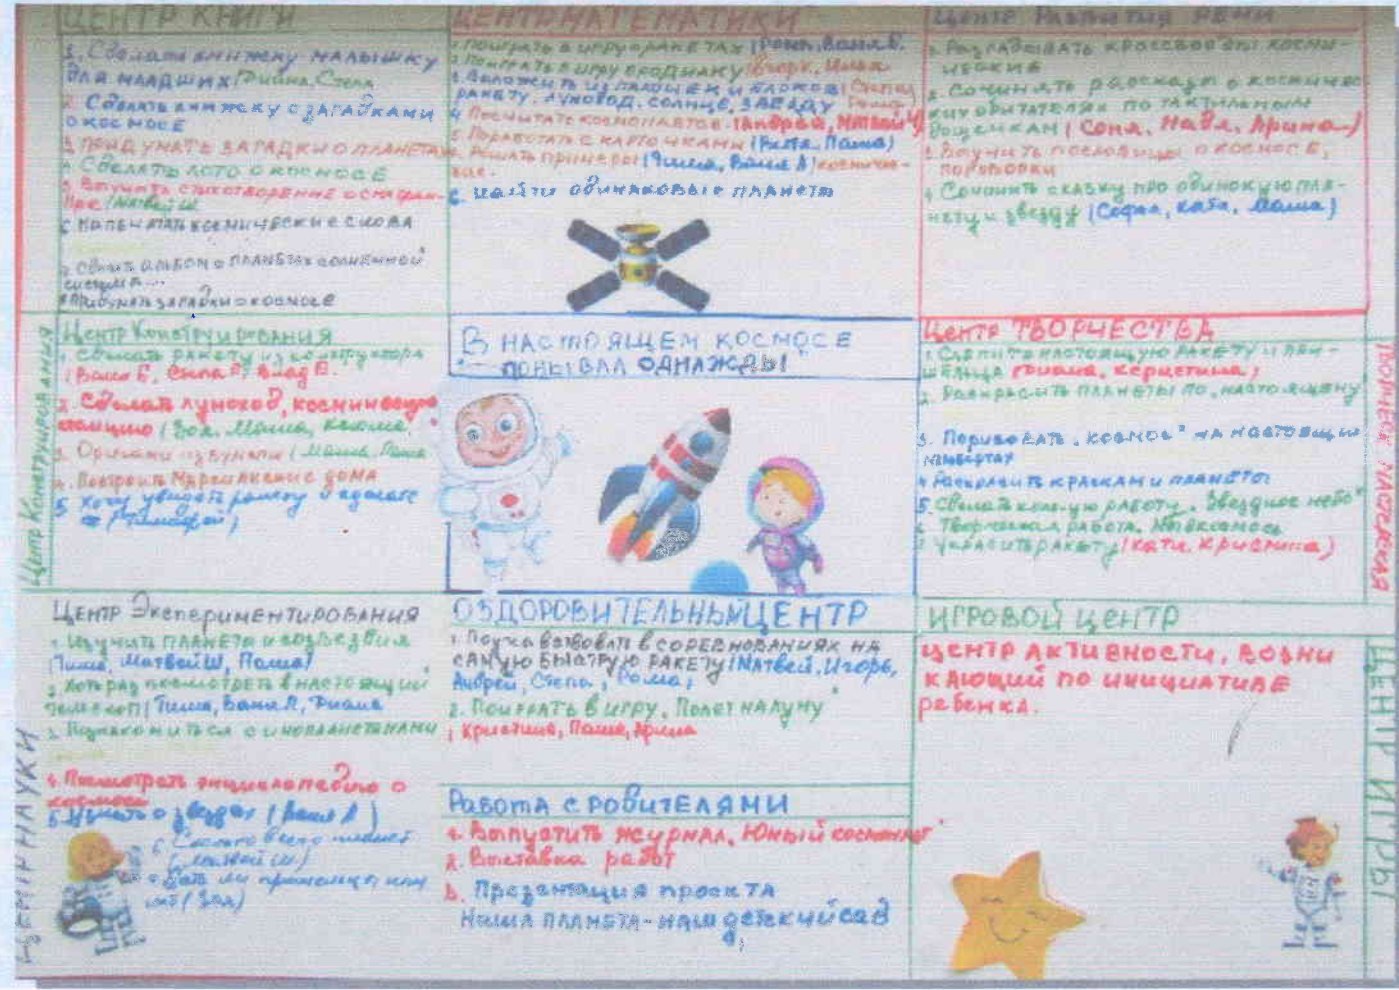 ЦЕНТР КНИГИ
1. Сделать книжку малышку
для младших (Диана, Степа
2. Сделать книжку с загадками
о космосе
3. Придумать загадки о планетах
Сделать лото о космосе
5. Выучить стихотворение о
(Матвей Ш
6 Напечатать космические слова
7 Сделать альбом о планетах солнечной
системы...
8 Придумать загадки о космосе
ЦЕНТР МАТЕМАТИКИ
1 Поиграть в игру о ракетах (Рома, Ваня Е.
2 Поиграть в игру (Игорь, Илья
3 Выложить из палочек и блоков (Степа
ракету, луноход, солнце, звезду Рома)
4 Посчитать космонавтов. (Андрей, Матвей Ч)
5 Поработать с карточками (Витя, Паша)
Решать примеры (Тиша, Ваня Л) космичес-
кие.
6. Найти одинаковые планеты
Центр Развития речи
1. Разгадывать кроссворды косми-
ческие
2. Сочинять рассказ о космичес-
ких обитателях по тактильным
дощечкам (Соня, Надя, Арина)
3 Выучить пословицы о космосе,
поговорки
4 Сочинить сказку про одинокую пла-
нету и звезду (Софья, Катя, Маша)
Центр Конструирования
Центр Конструирования
1. Сделать ракету из конструктора
(Ваня Е, Влад В.
2. Сделать луноход, космическую
станцию (Зоя. Маша, Ксюша,
3. Оригами из бумаги (Маша, Паша
4. Построить Марсианские дома
5. Хочу увидеть ракету и сделать
ее (Тимофей)
В НАСТОЯЩЕМ КОСМОСЕ
ПОБЫВАЛ ОДНАЖДЫ
Центр ТВОРЧЕСТВА
1. Слепить настоящую ракету и при-
шельца (Диана, Кристина)
2. Раскрасить планеты по, настоящему
3. Порисовать „Космос" на настоящих
мольбертах
4 Раскрасить красками планеты
5. Сделать кол-ую работу „Звездное небо"
6. Творческая работа. Мы в космосе
7 Украсить ракету (Катя, Кристина)
ТВОРЧЕСКАЯ МАСТЕРСКАЯ
ЦЕНТР НАУКИ
Центр Экспериментирования
1. Изучить планеты и созвездия
(Тиша, Матвей Ш, Паша)
2. Хоть раз посмотреть в настоящий
телескоп (Тиша, Ваня Л, Диана
3. Познакомиться с инопланетянами
4. Посмотреть энциклопедию о
космосе
5. Узнать о звездах (Ваня Л)
6. Сколько всего планет
(Матвей Ш.)
Есть ли пришельцы или
нет (Зоя)
ОЗДОРОВИТЕЛЬНЫЙ ЦЕНТР
1. Поучаствовать в соревнованиях на
самую быструю ракету (Матвей, Игорь,
Андрей, Степа, Рома,
2. Поиграть в игру „Полет на луну"
( Кристина, Паша, Арина
Работа с родителями
1. Выпустить журнал „Юный космонавт"
2. Выставка работ
3. Презентация проекта
Наша планета - наш детский сад
ИГРОВОЙ ЦЕНТР
ЦЕНТР АКТИВНОСТИ, ВОЗНИ
КАЮЩИЙ ПО ИНИЦИАТИВЕ
ребенка.
ЦЕНТР ИГРЫ